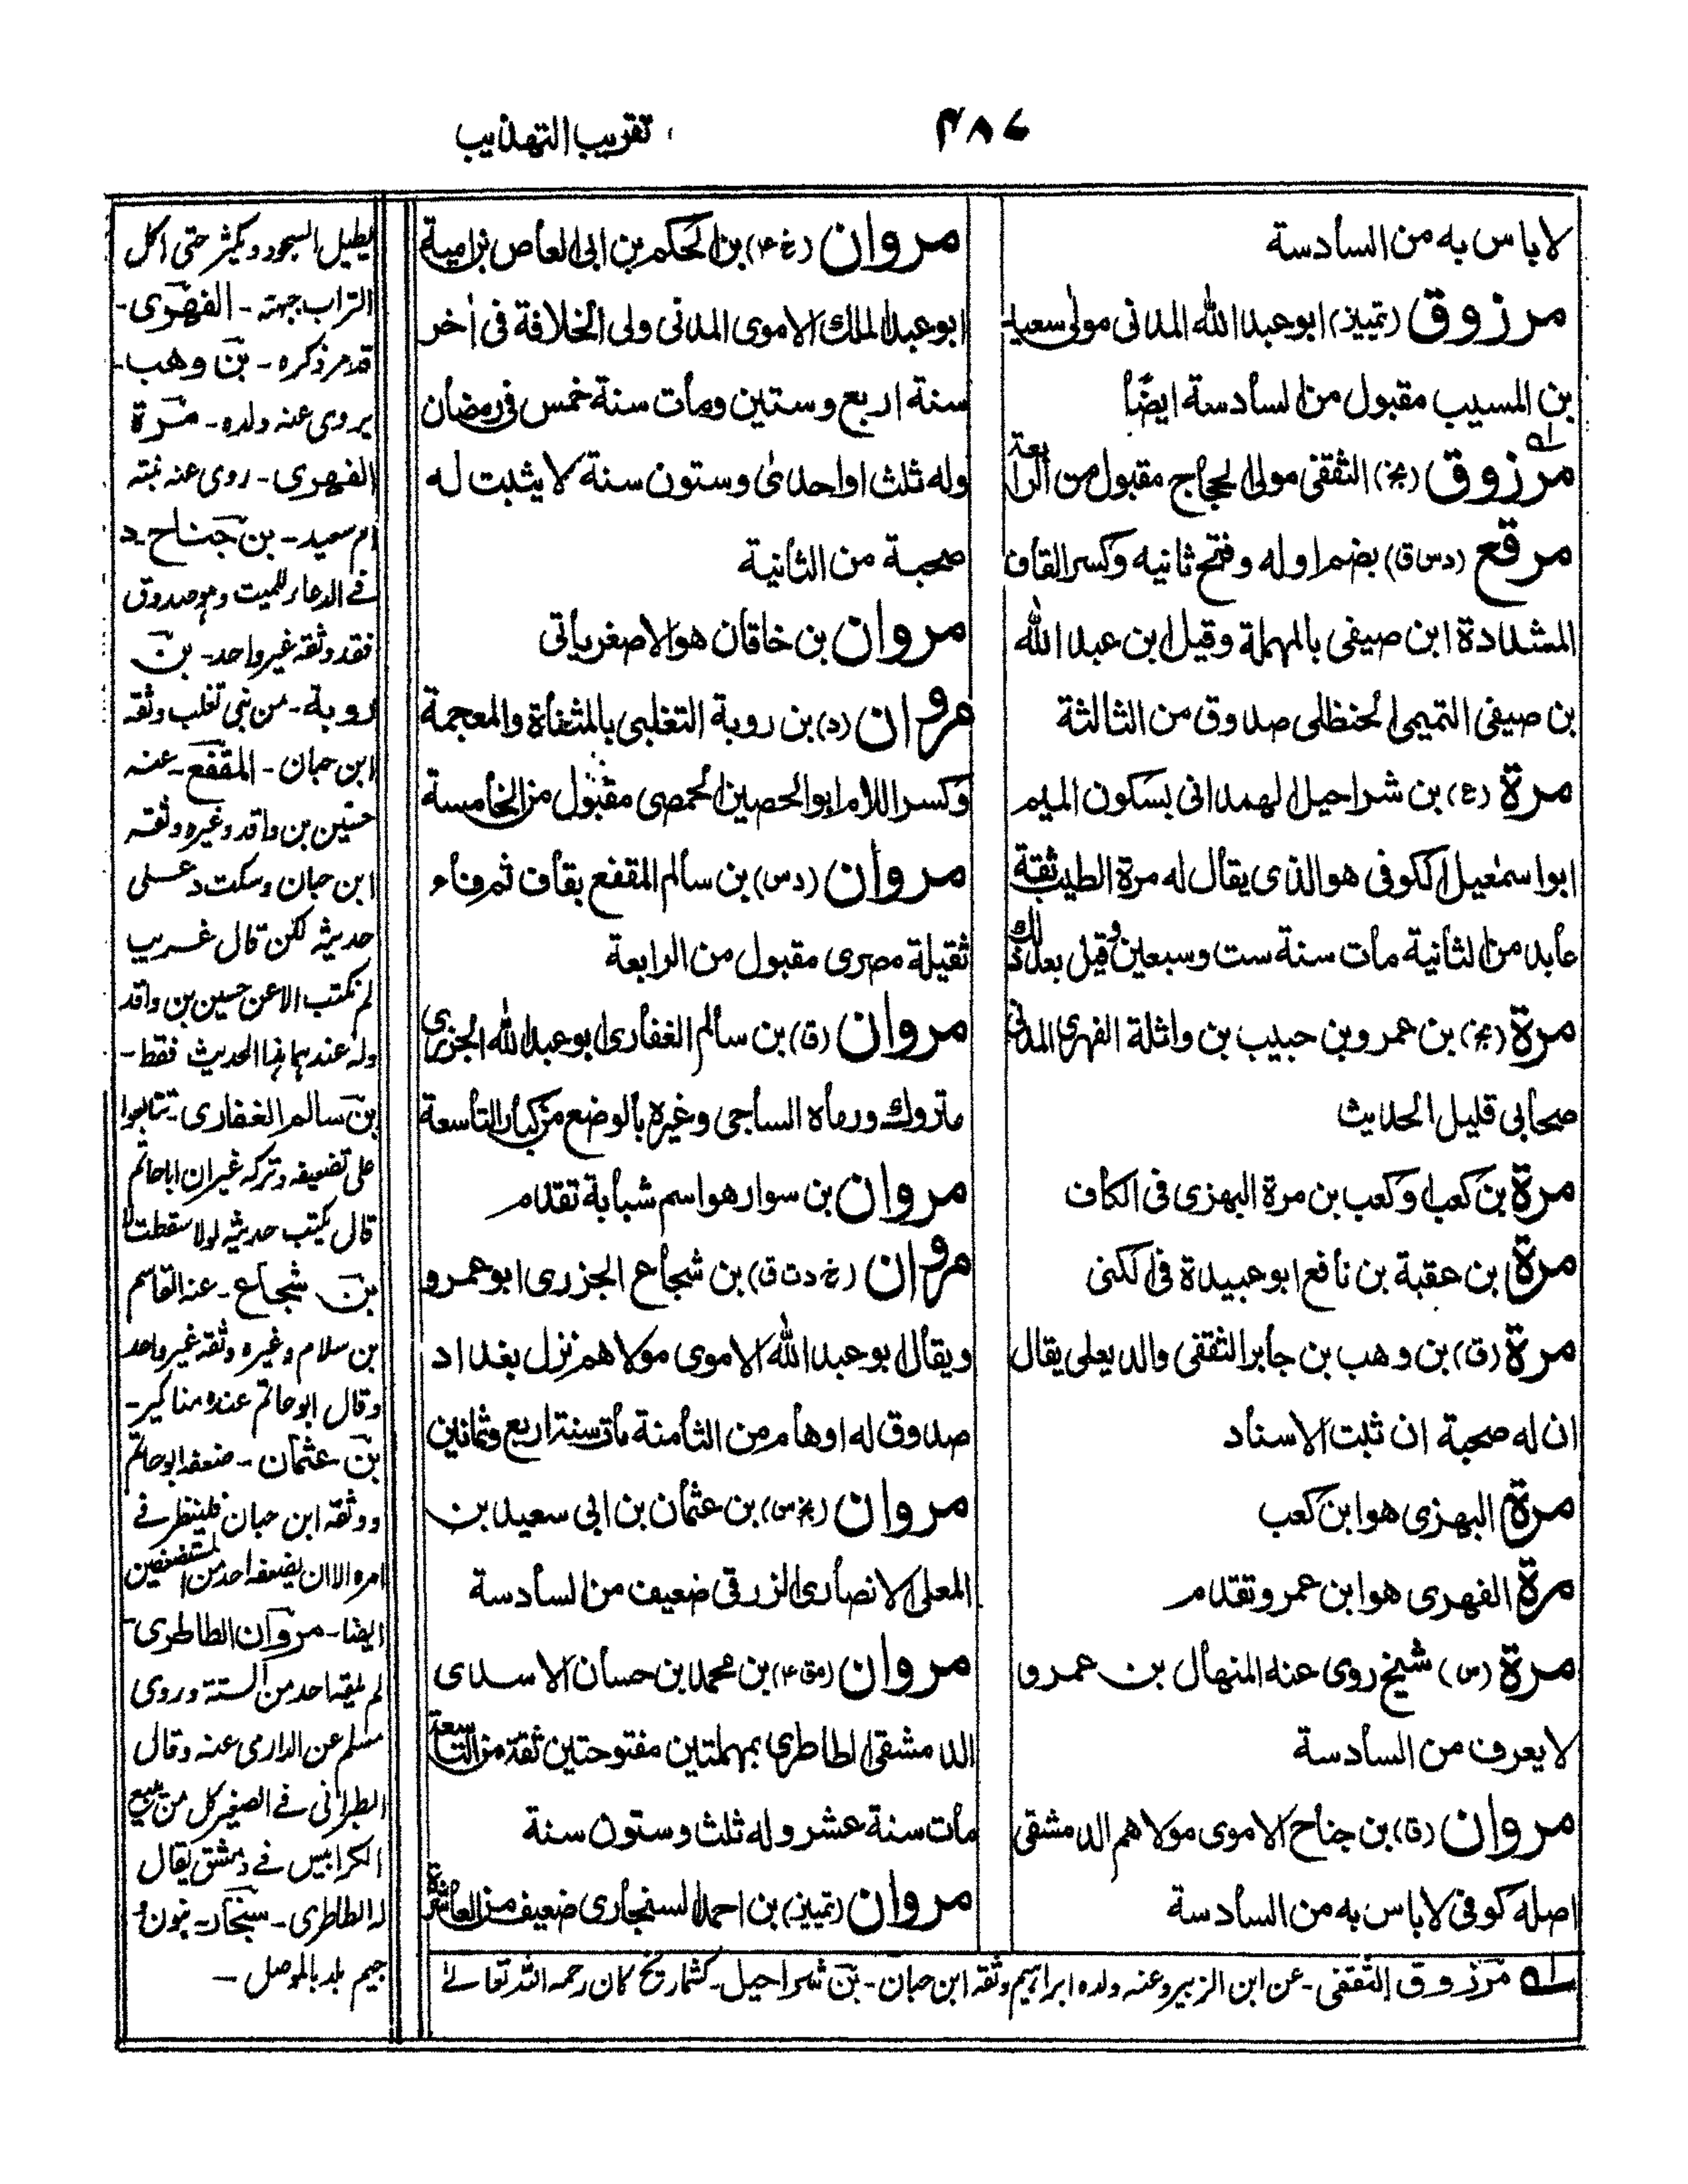 ٤٨٧
تقريب التهذيب
لا باس به من السادسة
مرزوق (تمييز) ابو عبد الله المدنى مولى سعيد
بن المسيب مقبول من السادسة ايضًا
مرزوق (بخ) الثقفى مولى الحجاج مقبول من الرابعة
مرقع (د س ق) بضم اوله وفتح ثانيه وكسر القاف
المشددة ابن صيفى بالمهملة وقيل ابن عبد الله
بن صيفى التميمى الحنظلى صدوق من الثالثة
مرة (ع) بن شراحيل الهمدانى بسكون الميم
ابو اسمعيل الكوفى هو الذى يقال له مرة الطيب ثقة
عابد من الثانية مات سنة ست وسبعين وقيل بعد ذلك
مرة (بخ) بن عمرو بن حبيب بن واثلة الفهرى المدنى
صحابى قليل الحديث
مرة بن كعب او كعب بن مرة البهزى فى الكاف
مرة بن عقبة بن نافع ابو عبيدة فى الكنى
مرة (ق) بن وهب بن جابر الثقفى والد يعلى يقال
ان له صحبة ان ثبت الاسناد
مرة البهزى هو ابن كعب
مرة الفهرى هو ابن عمرو تقدم
مرة (س) شيخ روى عنه المنهال بن عمرو
لا يعرف من السادسة
مروان (ق) بن جناح الاموى مولاهم الدمشقى
اصله كوفى لا باس به من السادسة
مروان (خ ۴) بن الحكم بن ابى العاص بن امية
ابو عبد الملك الاموى المدنى ولى الخلافة فى اٰخر
سنة اربع وستين ومات سنة خمس فى رمضان
وله ثلث او احدى وستون سنة لا يثبت له
صحبة من الثانية
مروان بن خاقان هو الاصفر ياتى
مروان (د) بن روبة التغلبى بالمثناة والمعجمة
وكسر اللام ابو الحصين الحمصى مقبول من الخامسة
مروان (د س) بن سالم المقفع بقاف ثم فاء
ثقيلة مصرى مقبول من الرابعة
مروان (ق) بن سالم الغفارى ابو عبد الله الجزرى
متروك ورماه الساجى وغيره بالوضع من كبار التاسعة
مروان بن سوار هو اسم شبابة تقدم
مروان (خ د ت ق) بن شجاع الجزرى ابو عمرو
ويقال ابو عبد الله الاموى مولاهم نزل بغداد
صدوق له اوهام من الثامنة مات سنة اربع وثمانين
مروان (بخ س) بن عثمان بن ابى سعيد بن
المعلى الانصارى الزرقى ضعيف من السادسة
مروان (مق ۴) بن محمد بن حسان الاسدى
الدمشقى الطاطرى بمهملتين مفتوحتين ثقة من التاسعة
مات سنة عشر وله ثلث وستون سنة
مروان (تمييز) بن احمد السنجارى ضعيف من العاشرة
يطيل السجود ويكثر حتى اكل
التراب جبهته - الفهرى -
قد مر ذكره - بن وهب -
يروى عنه ولده - مرة
الفهرى - روى عنه بنته
ام سعيد - بن جناح - د
فى الدعاء للميت وهو صدوق
فقد وثقه غير واحد - بن
روبة - من بنى تغلب وثقه
ابن حبان - المقفع - عنه
حسين بن واقد وغيره وثقه
ابن حبان وسكت د على
حديثه لكن قال غريب
لم نكتب الا عن حسين بن واقد
وله عندهما هذا الحديث فقط -
بن سالم الغفارى - تتابعوا
على تضعيفه وتركه غير ان ابا حاتم
قال يكتب حديثه
بن شجاع - عنه القاسم
بن سلام وغيره وثقه غير واحد
وقال ابو حاتم عنده مناكير -
بن عثمان - ضعفه ابو حاتم
ووثقه ابن حبان فلينظر فى
امره الا ان يضعفه احد من المستضعفين
ايضا - مروان الطاطرى -
لم يلقه احد من الستة وروى
مسلم عن الدارمى عنه وقال
الطبرانى فى الصغير كل من يبيع
الكرابيس فى دمشق يقال
له الطاطرى - سنجار - بنون و
جيم بلد بالموصل -
له مرزوق الثقفى - عن ابن الزبير وعنه ولده ابراهيم وثقه ابن حبان - بن شراحيل - كان رحمه الله تعالى